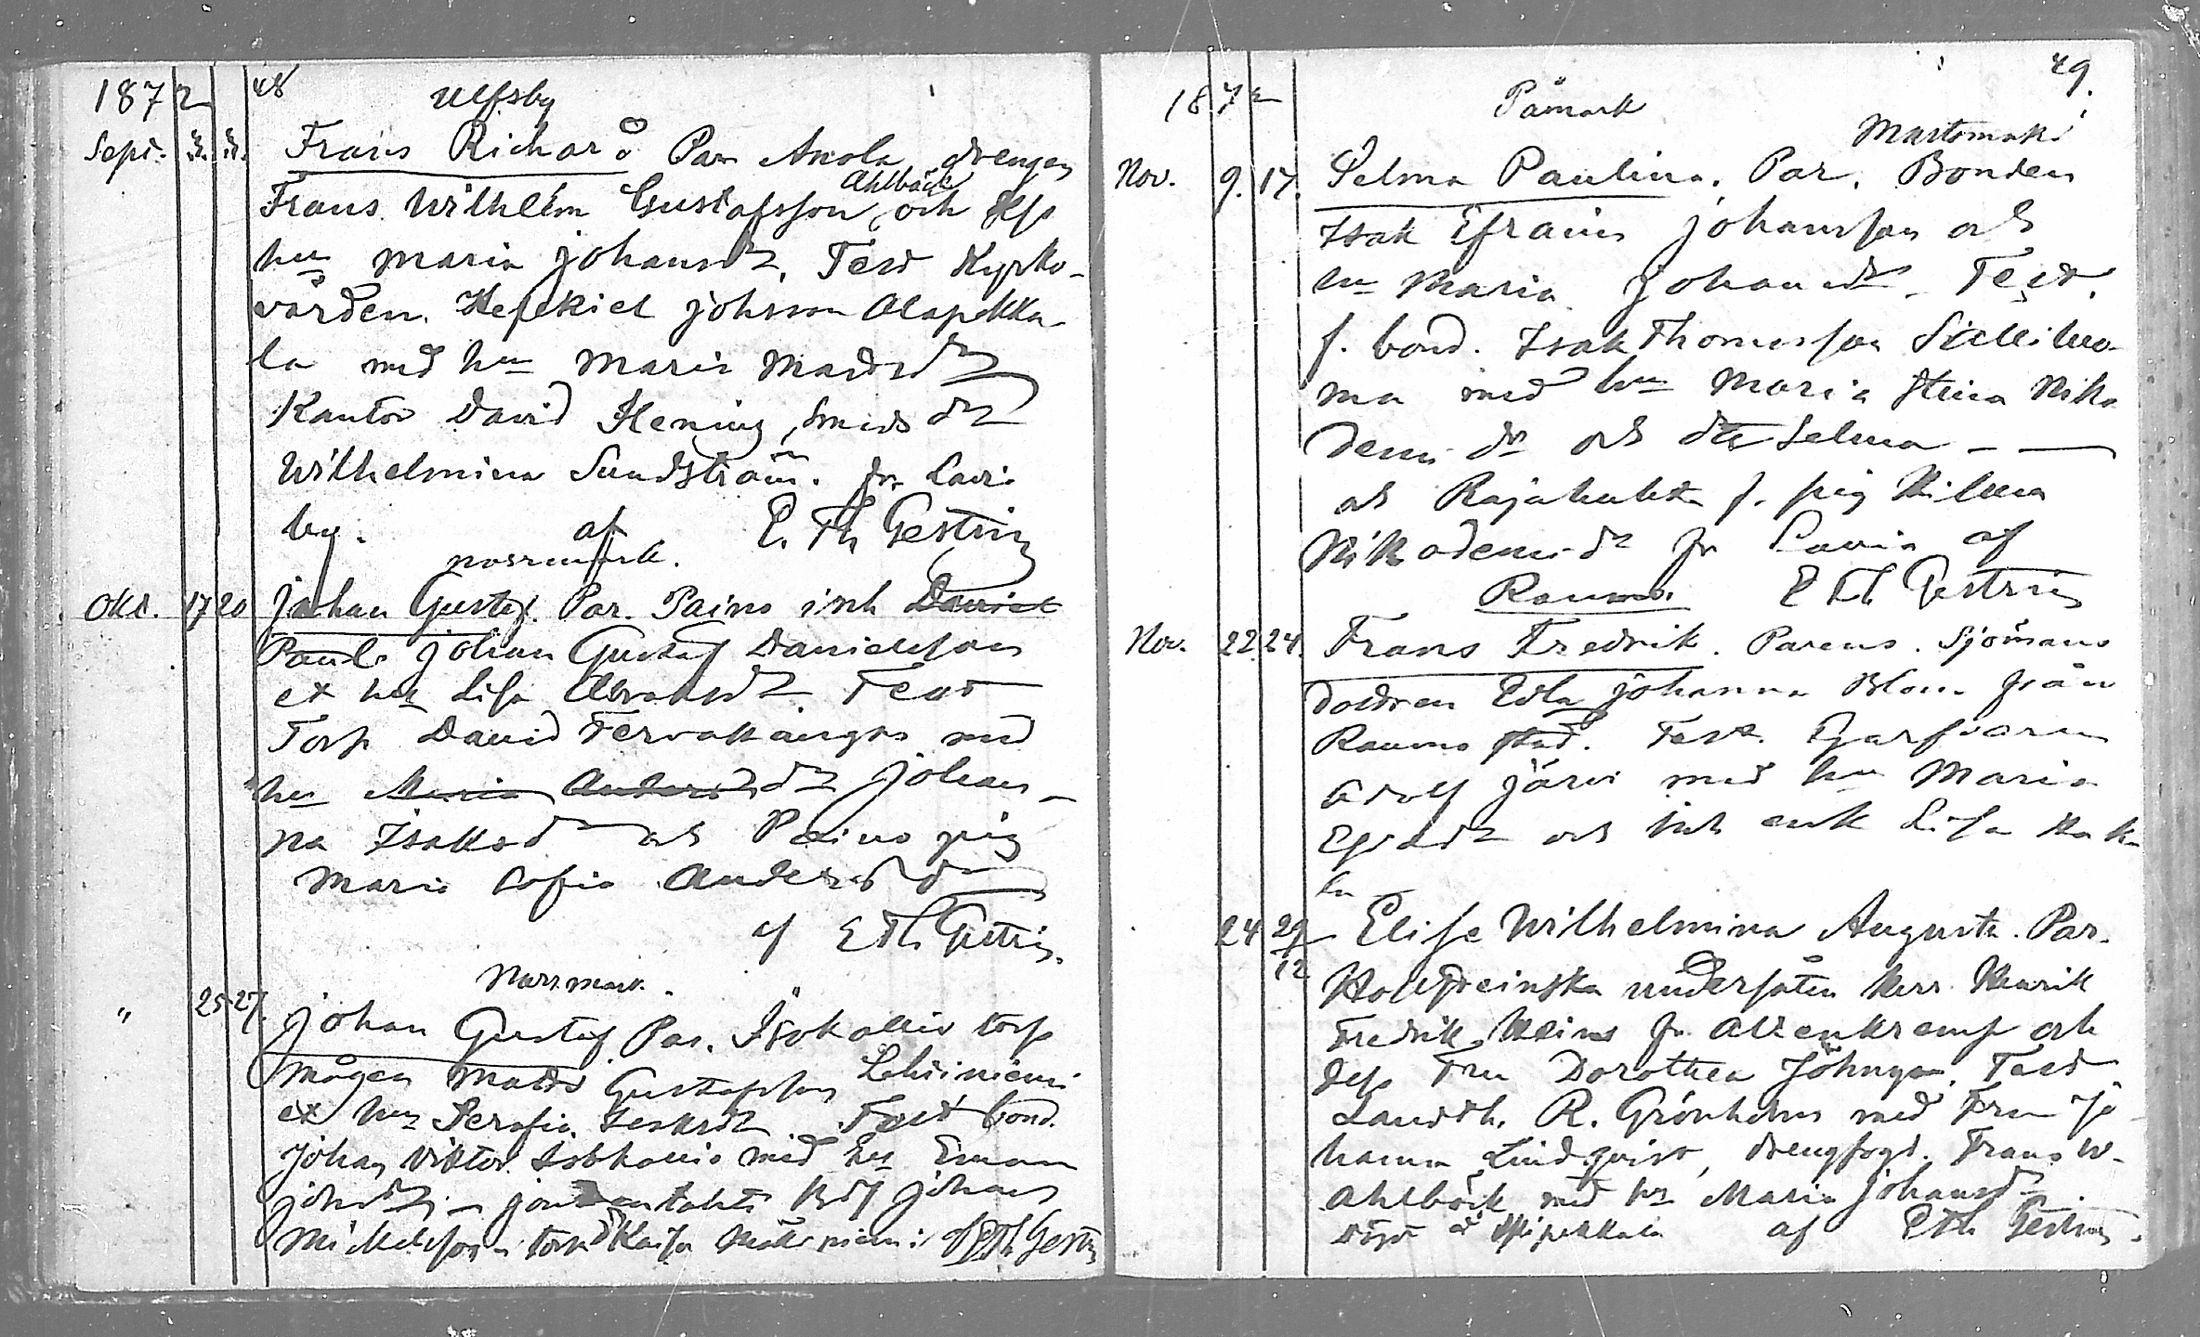 1872 48 Ulfsby
Sept. 3. 3. Frans Richard Par Anola drengen
Frans Wilhelm Gustafsson Ahlbäck och Hs
hu Maria Johansdr, Test Kyrko-
värden. Hesekiel Johsson Alapekka-
la med hu Maria Matsdr
Kantor David Hening, Smeds dr
Wilhelmina Sundström. fr. Lavi-
by. af E. Th Gestrin
Norrmark.
Okt. 17 20 Johan Gustaf. Par. Paino inh Daniel
Paul. Johan Gustaf Danielsson
ex hu Lisa Abrahdr. Test
Torp David Tervakangas med
hu Maria Andersdr Johan-
na Isaksdr och Paino pig
Maria Sofia Andersdr
af E Th Gestrin.
Norrmark.
" 25 27. Johan Gustaf Par. Isokallio torp
mågen Matts Gustafsson Lehtiniemi
ex hu Serafia Isaksdr Test bond.
Johan Viktor Isokallio med hu Emma
Johsdr
Mickelsson torp Kaisa af ETh Gestrin
1872 Påmark 49.
Mastomäki
Nov. 9. 17. Selma Paulina. Par. Bonden
Isak Efraim Johansson och
hu Maria Johansdr. Test.
f. bond. Isak Thomasson
ma med hu Maria Stina Niko
demi dr och dtr Selma
och f. pig Hilma
Nikodemidr fr Lavia af
Raumo. E Th Gestrin
Nov. 22. 24. Frans Fredrik. Parens. Sjömans
dottren Edla Johanna Blom från
Raumo stad. Test. Garfvaren
Adolf Järvi med hu Maria
och inh enk Lisa Kak-
la
24 29/12 Elise Wilhelmina Augusta. Par.
Holsteinska undersåten Herr Henrik
Fredrik Heins fr. Altenkremp och
dess Fru Dorothea Föhngen. Test
Landth. R. Grönholm med Fru Jo
hanna Lindqvist, drengfogd. Frans W-
Ahlbäck med hu Maria Johansdr
af ETh Gestrin.